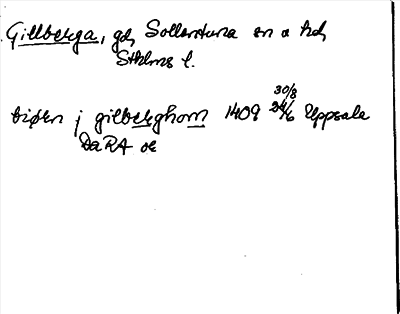 Gillberga, gd, Sollentuna sn o hd,
Sthlms l.
30/8
biørn j gilberghom 1409 24/6 Uppsala
DaRA or